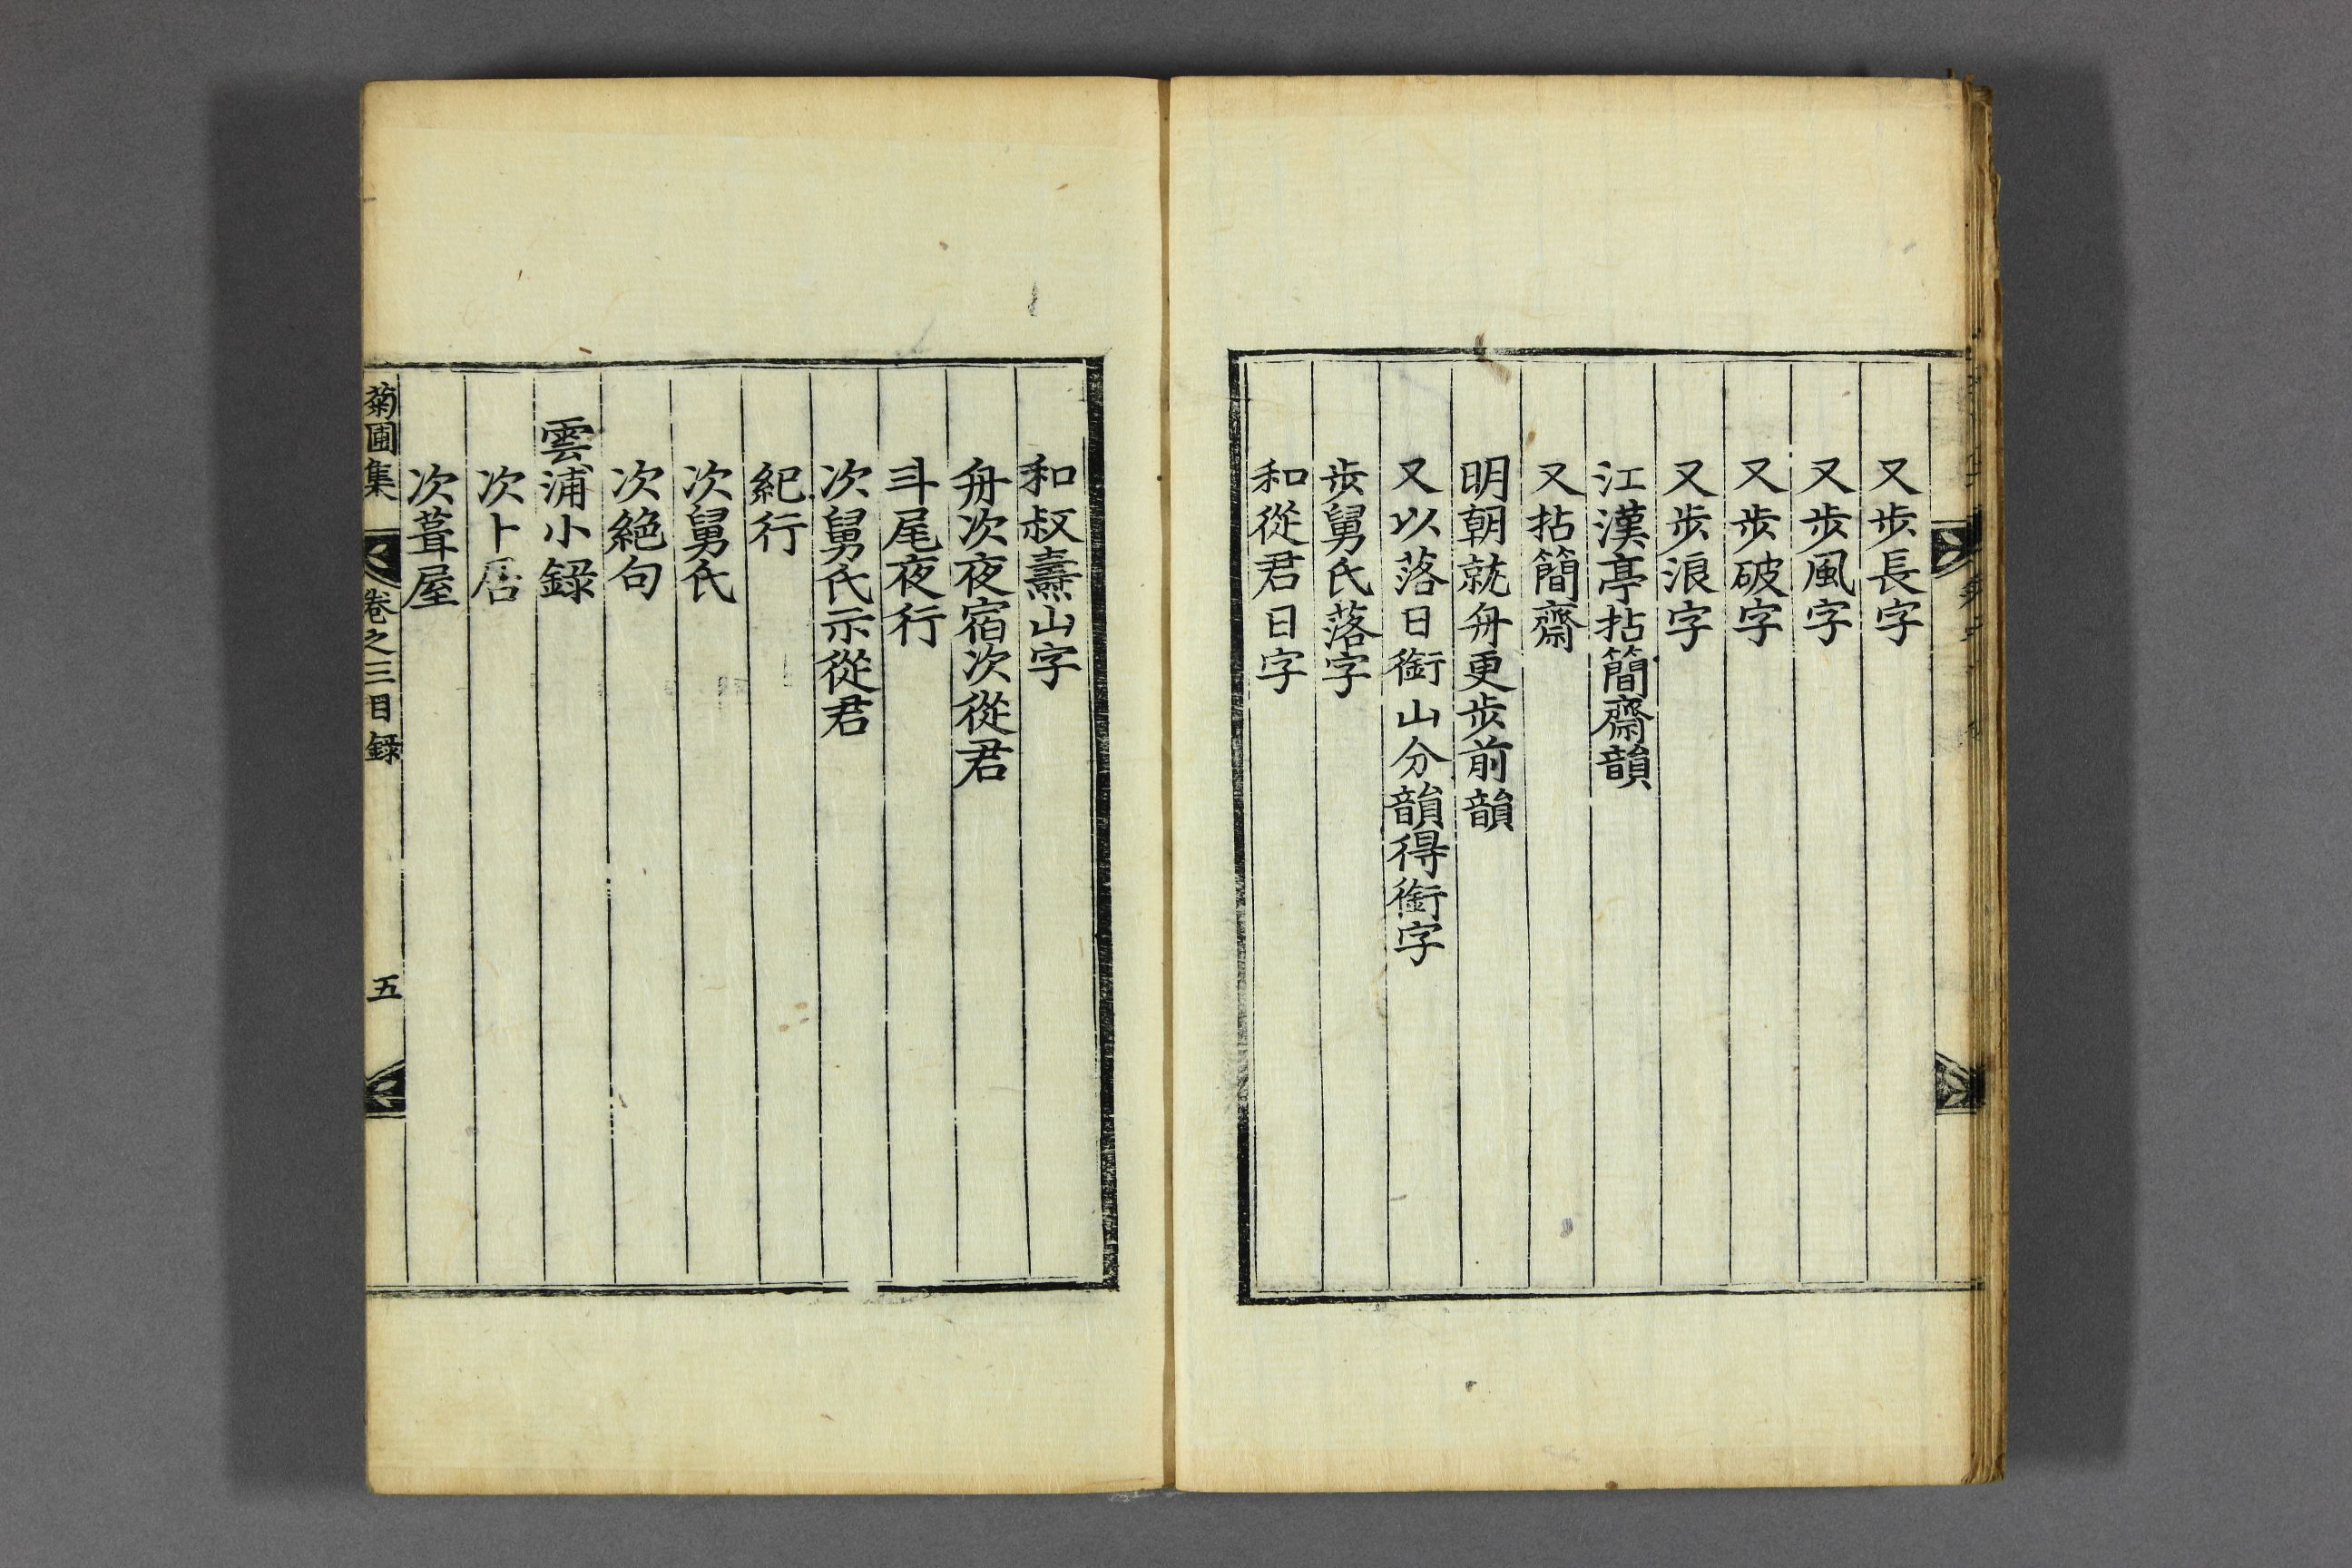 又步長字
又步風字
又步破字
又步浪字
江漢亭拈簡齋韻
又拈簡齋
明朝就舟更步前韻
又以落日銜山分韻得銜字
步舅氏落字
和從君日字
和叔燾山字
舟次夜宿次從君
斗尾夜行
次舅氏示從君
紀行
次舅氏
次絕句
雲浦小錄
次卜居
次葺屋
菊圃集 卷之三目錄 五